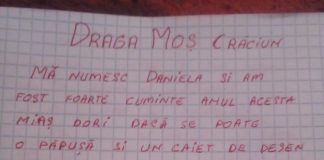 DRAGA MOȘ CRĂCIUN
MĂ NUMESC DANIELA SI AM
FOST FOARTE CUMINTE ANUL ACESTA
MIAȘ DORI DACĂ SE POATE
O PĂPUȘĂ SI UN CAIET DE DESEN